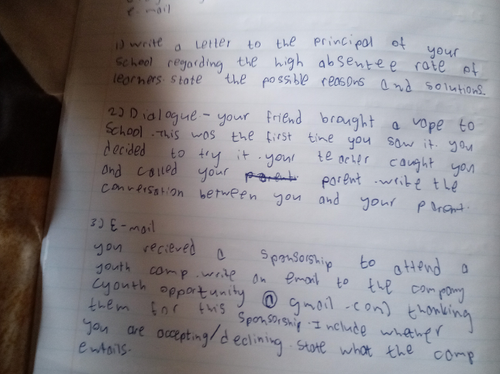 e-mail
1) write a letter to the principal of your
school regarding the high absentee rate of
learners. state the possible reasons and solutions.
2) Dialogue - your friend brought a vape to
school. This was the first time you saw it. you
decided to try it. your teacher caught you
and called your parent parent. write the
conversation between you and your parent.
3) E-mail
you recieved a sponsorship to attend a
youth camp. write an email to the company
(youth opportunity @ gmail.com) thanking
them for this sponsorship. Include whether
you are accepting/declining. state what the camp
entails.